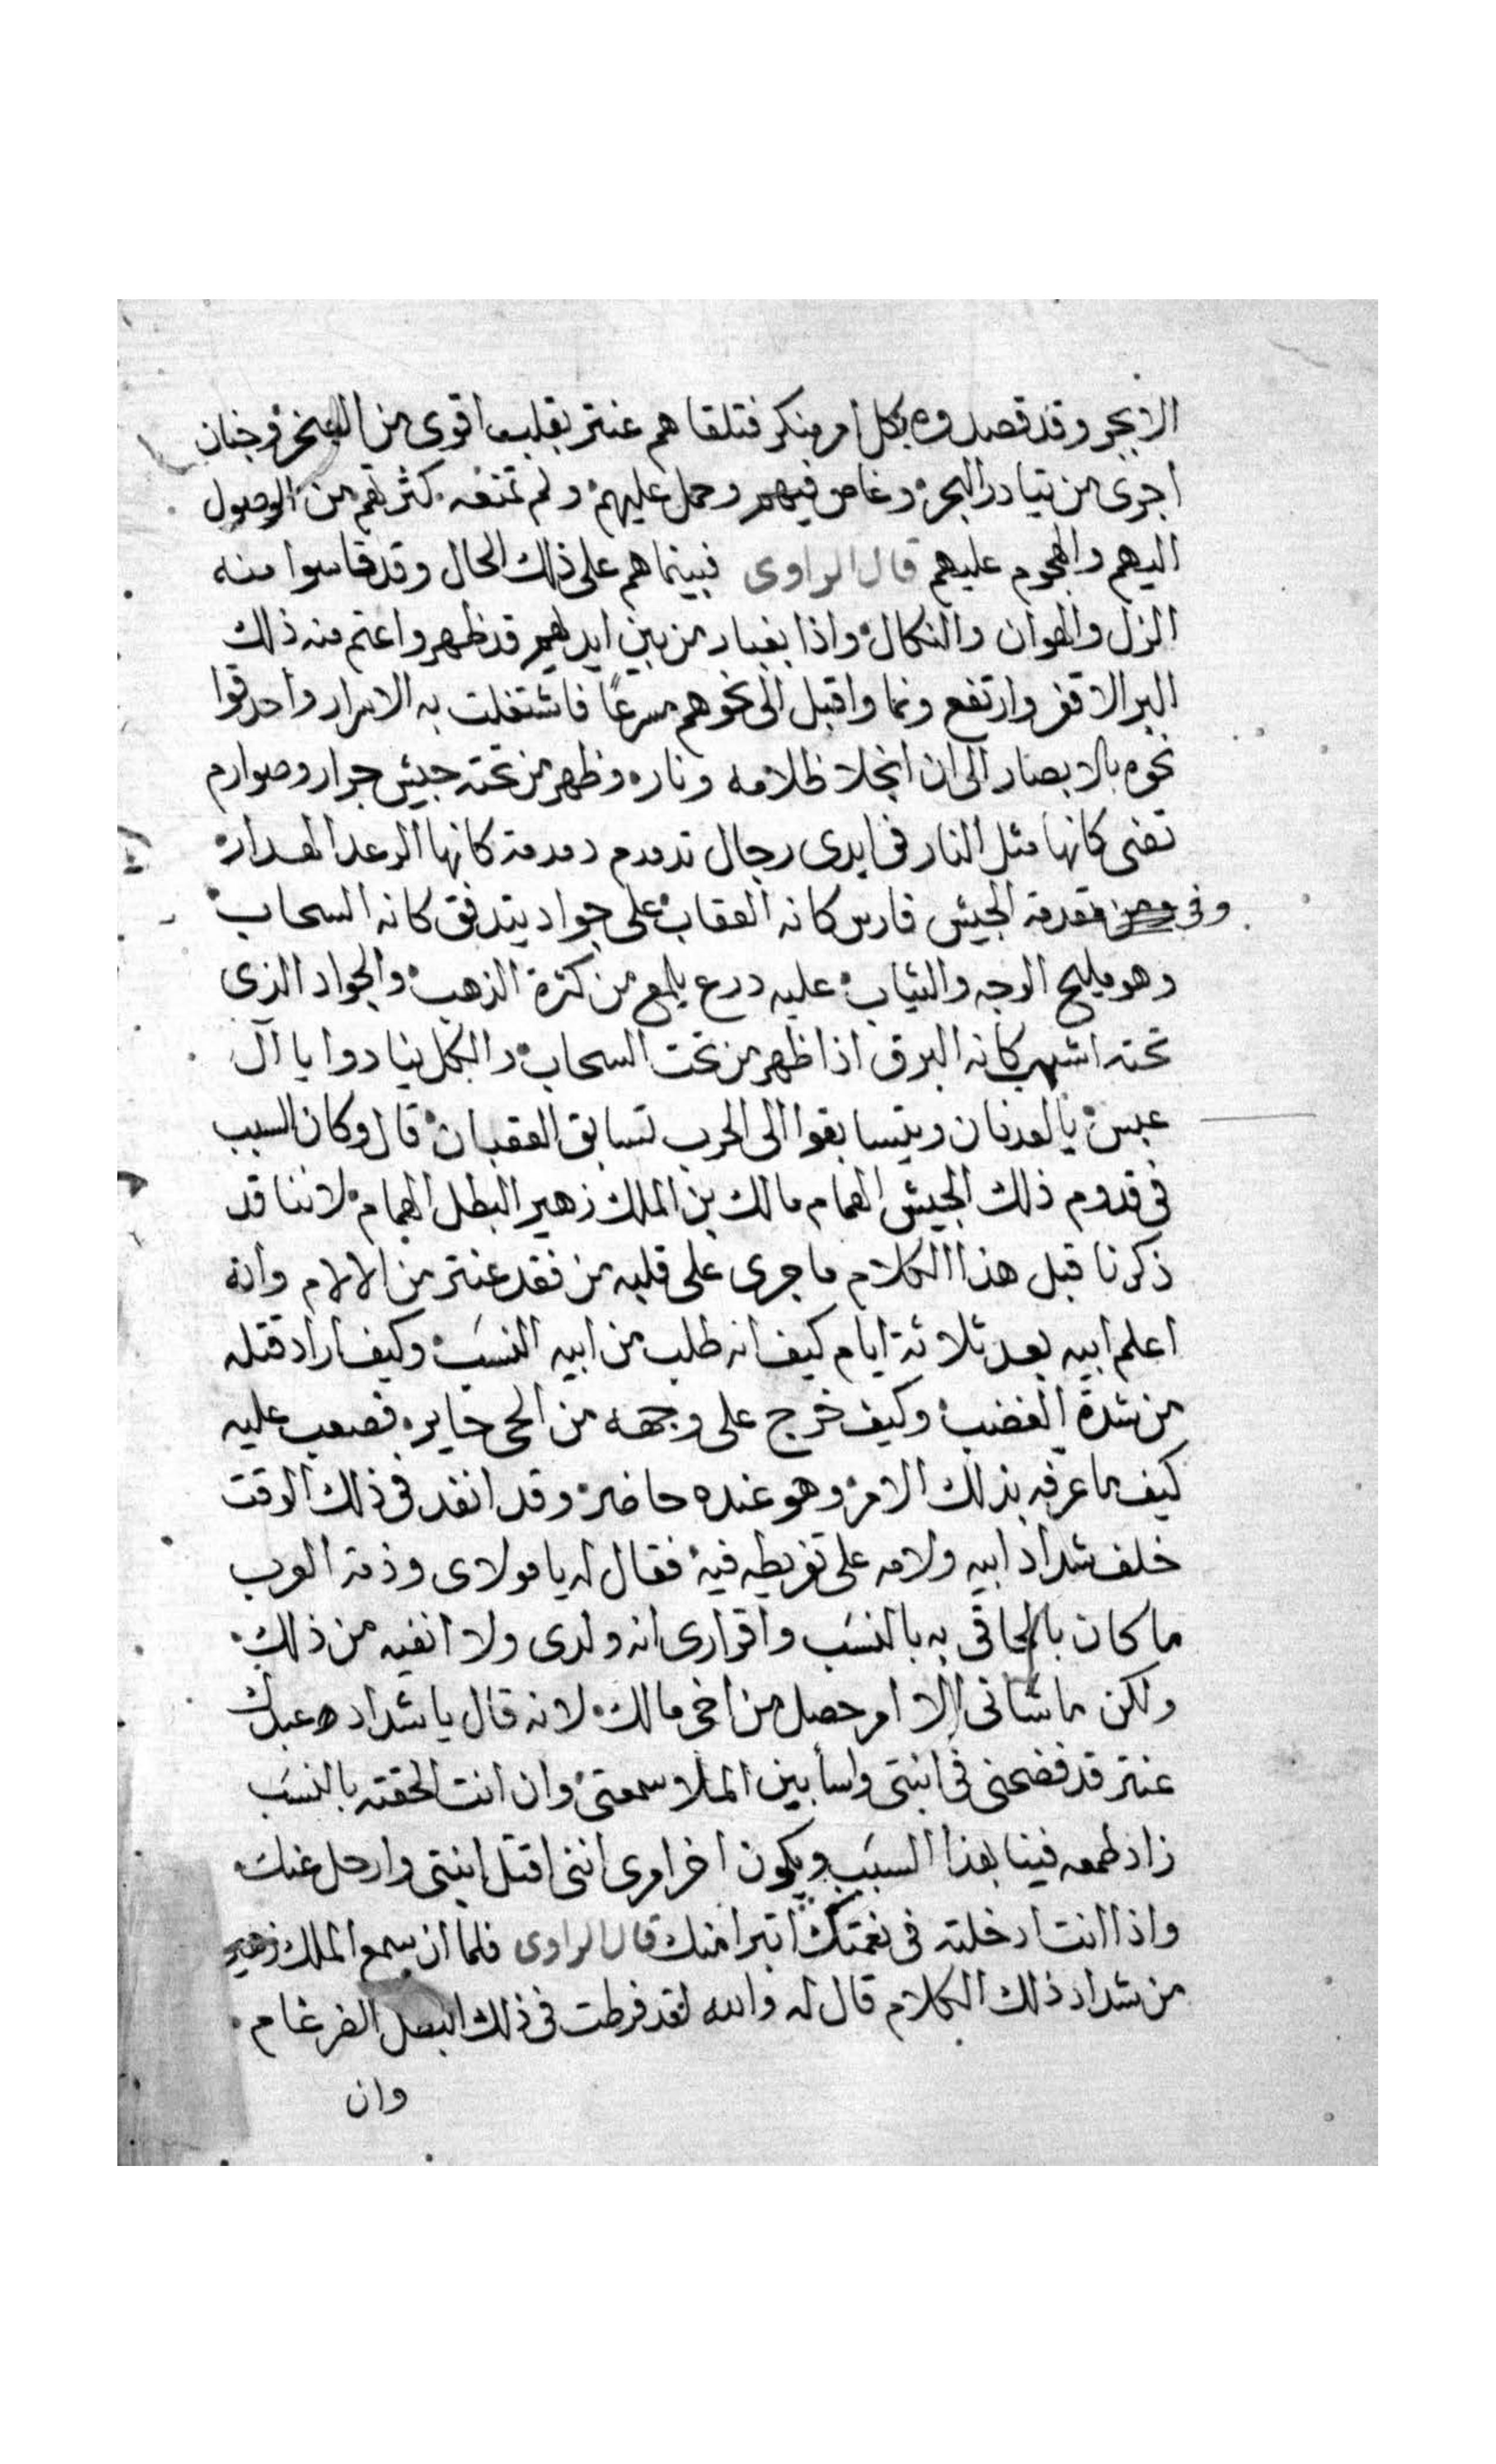 الابجر وقد قصدوه بكل امر منكر فتلقاهم عنتر بقلب اقوى من الصخر وجنان
اجرى من تيار البحر وغاص فيهم وحمل عليهم ولم تمنعه كثرتهم من الوصول
اليهم والهجوم عليهم قال الراوى فبينماهم على ذلك الحال وقد قاسوا منه
الزل والهوان والنكال واذا بغبار من بين ايديهم قد ظهر واعتم منه ذلك
البر الاقفر وارتفع ونما واقبل الى نحوهم مسرعًا فاشتغلت به الاسرار واحدقوا
نحوه بالابصار الى ان انجلا ظلامه وناره وظهر من تحته جيش جرار وصوارم
تضى كانها مثل النار فى ايدى رجال تدمدم دمدمة كانها الرعد الهدار
وفى مقدمة الجيش فارس كانه العقاب على جواد يتدفق كانه السحاب
وهو مليح الوجه والثياب عليه درع يلمع من كثرة الذهب والجواد الذى
تحته اشهب كانه البرق اذا ظهر من تحت السحاب والكل ينادوا يا آل
عبس يا لعدنان ويتسابقوا الى الحرب تسابق العقبان قال وكان السبب
فى قدوم ذلك الجيش الهمام مالك بن الملك زهير البطل الهمام لاننا قد
ذكرنا قبل هذا الكلام ما جرى على قلبه من فقد عنتر من الالام وانه
اعلم ابيه بعد ثلاثة ايام كيف انه طلب من ابيه النسَب وكيف اراد قتله
من شدة الغضب وكيف خرج على وجهه من الحى حاير فصعب عليه
كيف ما عرفه بذلك الامر وهو عنده حاضر وقد انفد فى ذلك الوقت
خلف شداد ابيه ولامه على تفريطه فيه فقال له يا مولاى وذمة العرب
ما كان بالحاقى به بالنسَب واقرارى انه ولدى ولا انفيه من ذلك
ولكن ما شانى الا امر حصل من اخى مالك لانه قال يا شداد عبدك
عنتر قد فضحنى فى ابنتى واسأ بين الملا سمعتى وان انت الحقته بالنسَب
زاد طمعه فينا بهذا السبَب ويكون اخر امرى اننى اقتل ابنتى وارحل عنك
واذا انت ادخلته فى نعمتك اتبرا منك قال الراوى فلما ان سمع الملك زهير
من شداد ذلك الكلام قال له والله لقد فرطت فى ذلك البطل الضرغام
وان